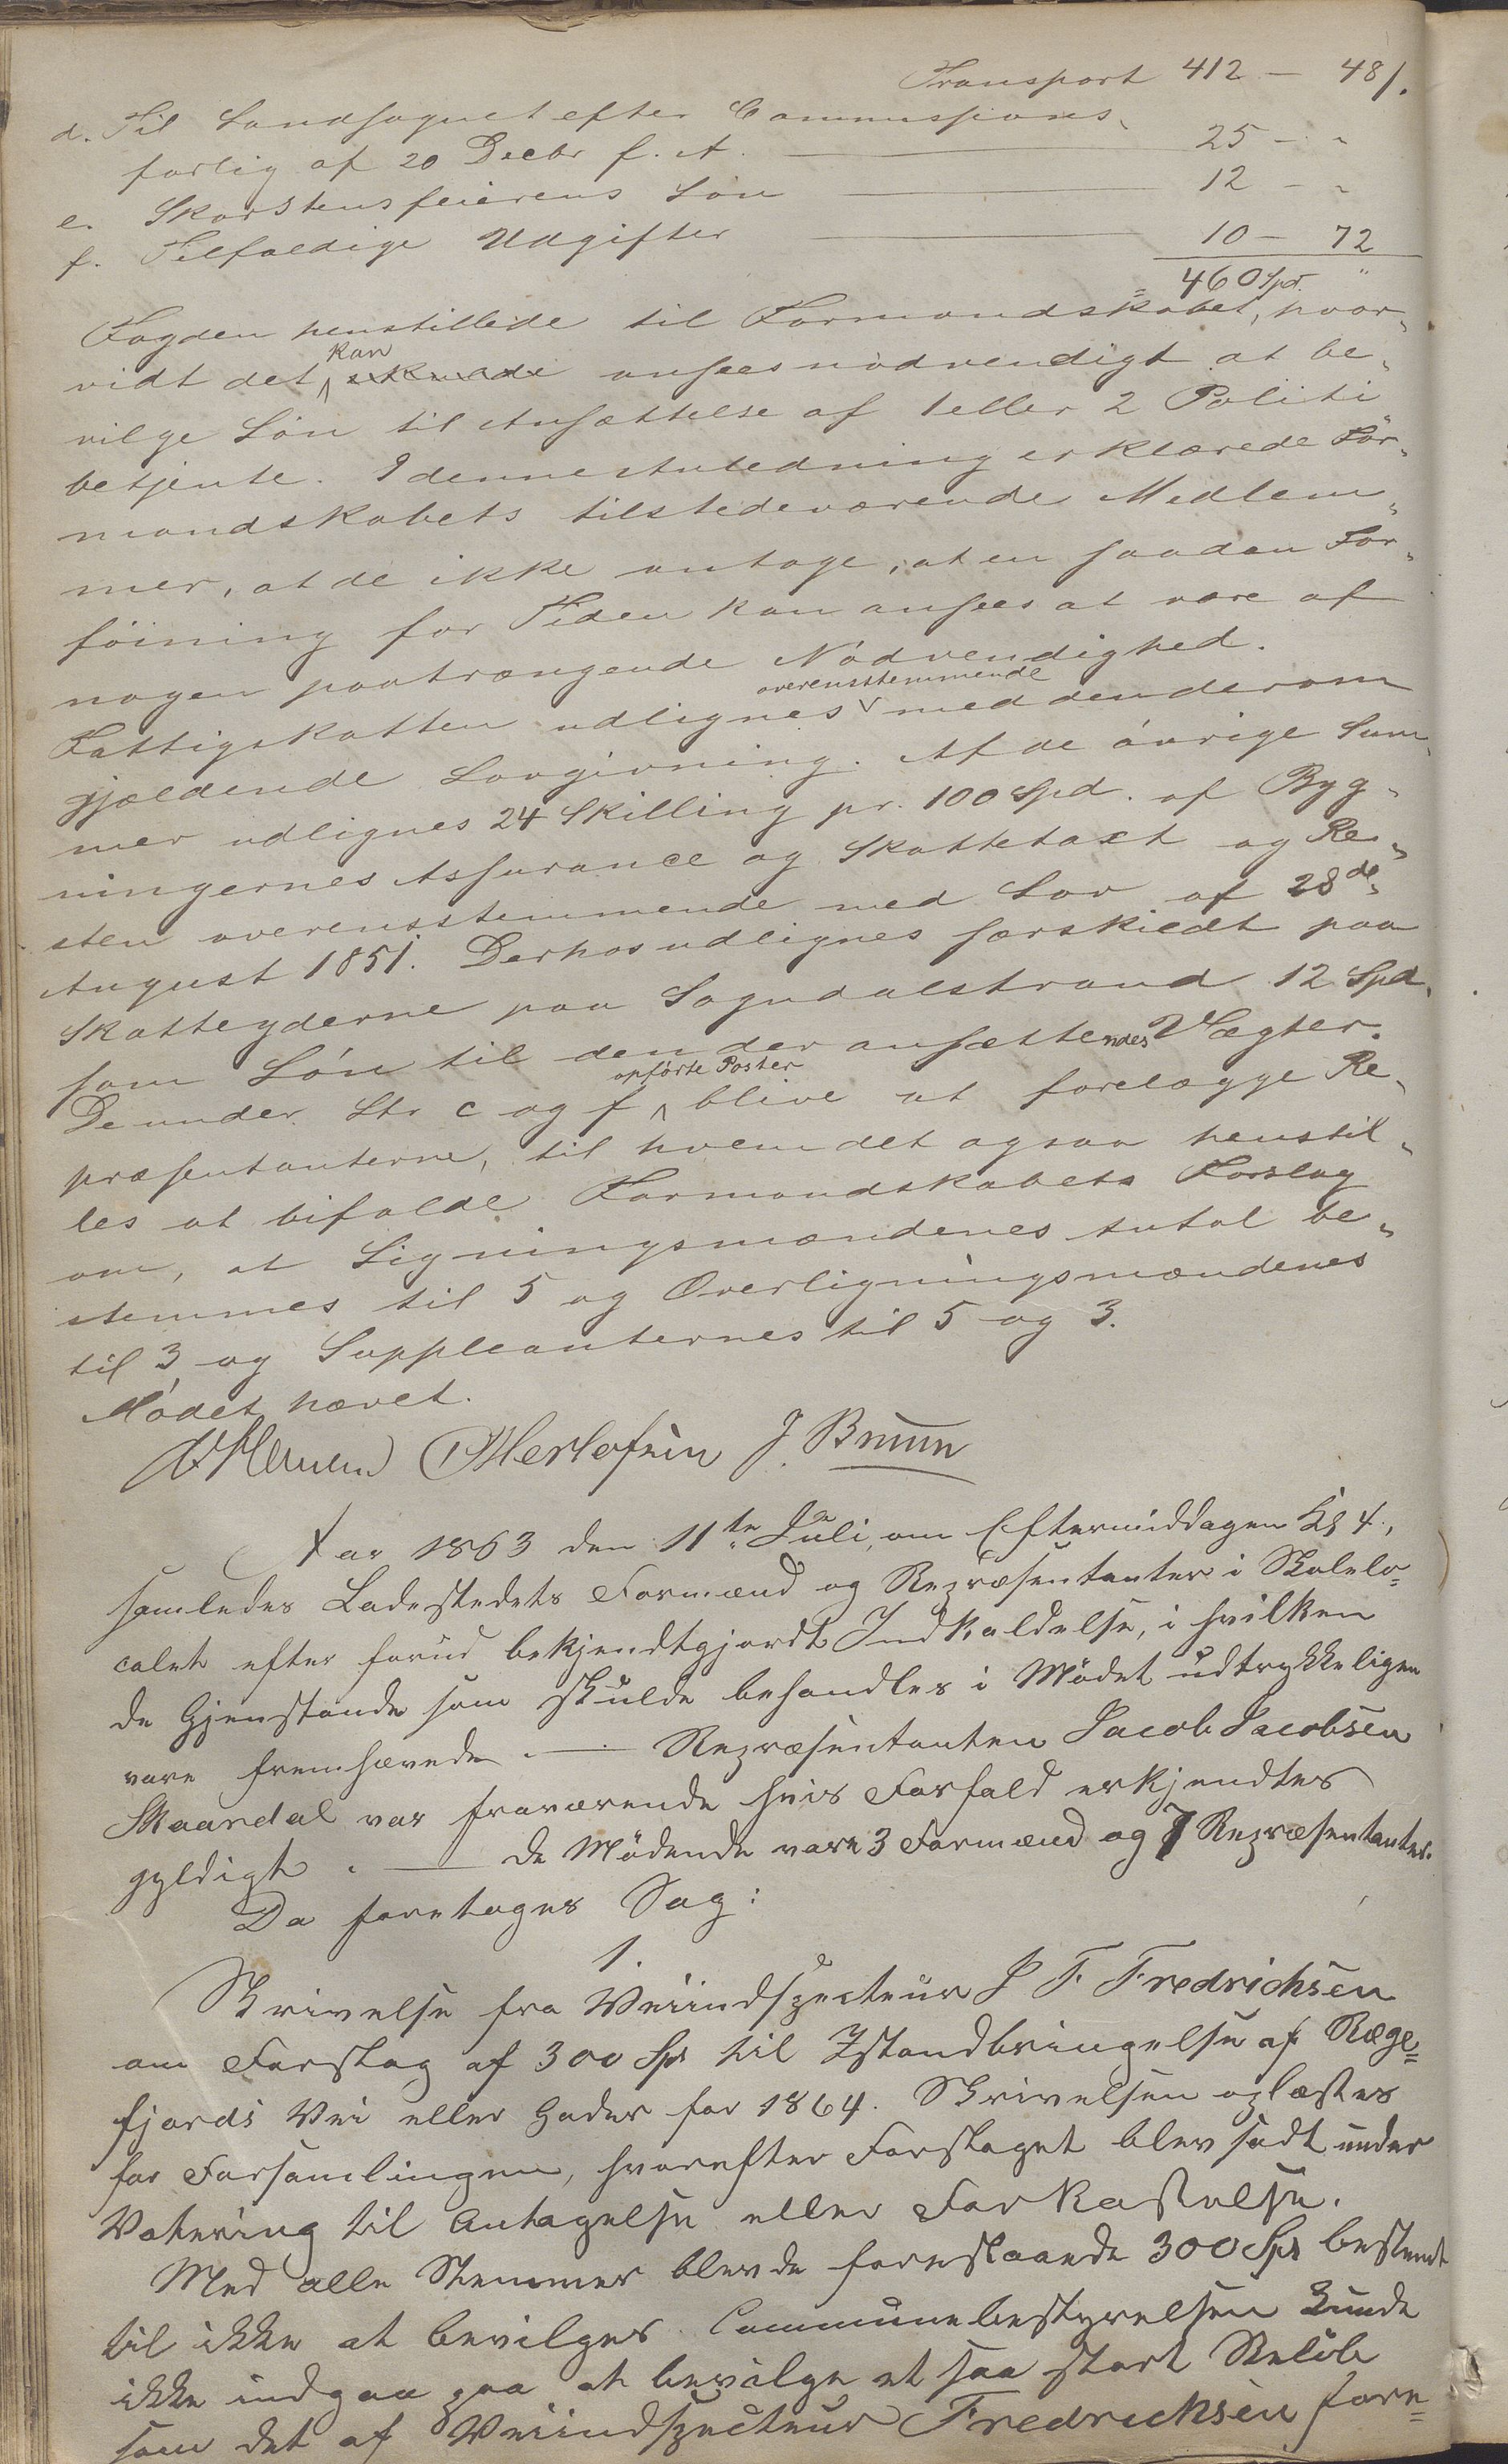 Transport 412 - 48/.
d. Til Landsognet efter Commissions-
forlig af 20 Decbr f. A. 25 - "
e. Skorstensfeierens Løn 12 - "
f. Tilfældige Udgifter 10 - 72
= 460 Spd. "
Fogden henstillede til Formandskabet, hvor-
kan
vidt det ansees nødvendigt at be-
vilge Løn til Ansættelse af 1 eller 2 Politi
betjente. I denne Anledning erklærede For-
mandskabets tilstedeværende Medlem-
mer, at de ikke antage, at en saadan For-
føining for Tiden kan ansees at være af
nogen paatrængende Nødvendighed.
overensstemmende
Fattigskatten udlignes med den derom
gjældende Lovgivning. Af de øvrige Sum-
mer udlignes 24 Skilling pr. 100 Spd. af Byg-
ningernes Assurance og Skattetaxt og Re-
sten overensstemmende med Lov af 28de
August 1851. Derhos udlignes særskiedt paa
Skatteyderne paa Sogndalstrand 12 Spd.
som Løn til den der ansættendes Vægter.
opførte Poster
De under Ltr c og f blive at forelægge Re-
præsentanterne, til hvem det ogsaa henstil-
les at bifalde Formandskabets Forslag
om, at Ligningsmændenes Antal be-
stemmes til 5 og Overligningsmændenes
til 3 og Suppleanternes til 5 og 3.
Mødet hævet.
Herlofsen J. Bruun
Aar 1863 den 11te Juli, om Eftermiddagen Kl 4,
samledes Ladestedets Formænd og Repræsentanter i Skolelo-
calet efter forud bekjendtgjordt Indkaldelse, i hvilken
de Gjenstande som skulde behandles i Mødet udtrykkeligen
vare fremhævede. — Repræsentanten Jacob Jacobsen
Skaardal var fraværende hvis Forfald erkjendtes
gyldigt. — de Mødende vare 3 Formænd og 7 Repræsentanter.
Da foretoges Sag:
1.
Skrivelse fra Veiindspecteur J F Fredrichsen
om Forslag af 300 Spd til Istandbringelse af Ræge=
fjords Vei eller Gader for 1864. Skrivelsen oplæstes
for Forsamlingen, hvorefter Forslaget blev sadt under
Votering til Antagelse eller Forkastelse.
Med alle Stemmer blev de foreslaaede 300 Spd bestemt
til ikke at bevilges. Communebestyrelsen kunde
ikke indgaa paa at bevilge et saa stort Beløb
som det af Veiindspecteur Fredrichsen fore=